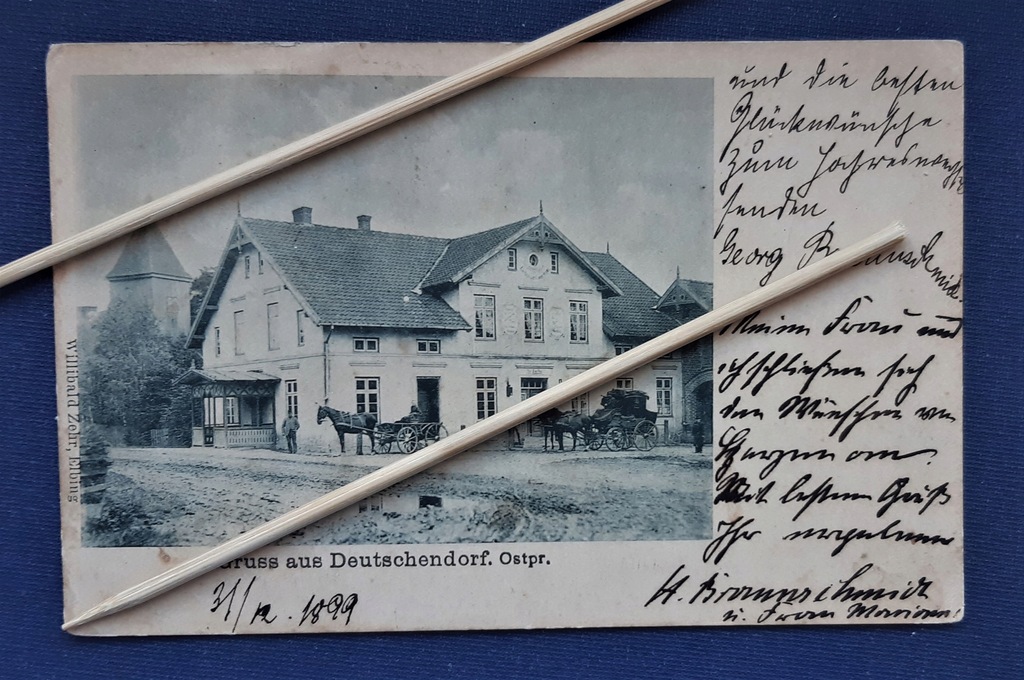 Willibald Zehr, Elbing
Gruss aus Deutschendorf. Ostpr.
31/12. 1899
und die besten
Glückwünsche
zum Jahreswechsel
senden
Georg
Meine Frau und
ich schließen sich
den Wünschen von
Herzen an.
Mit bestem Gruß
Ihr ergebener
H. Braunschmidt
u. Frau